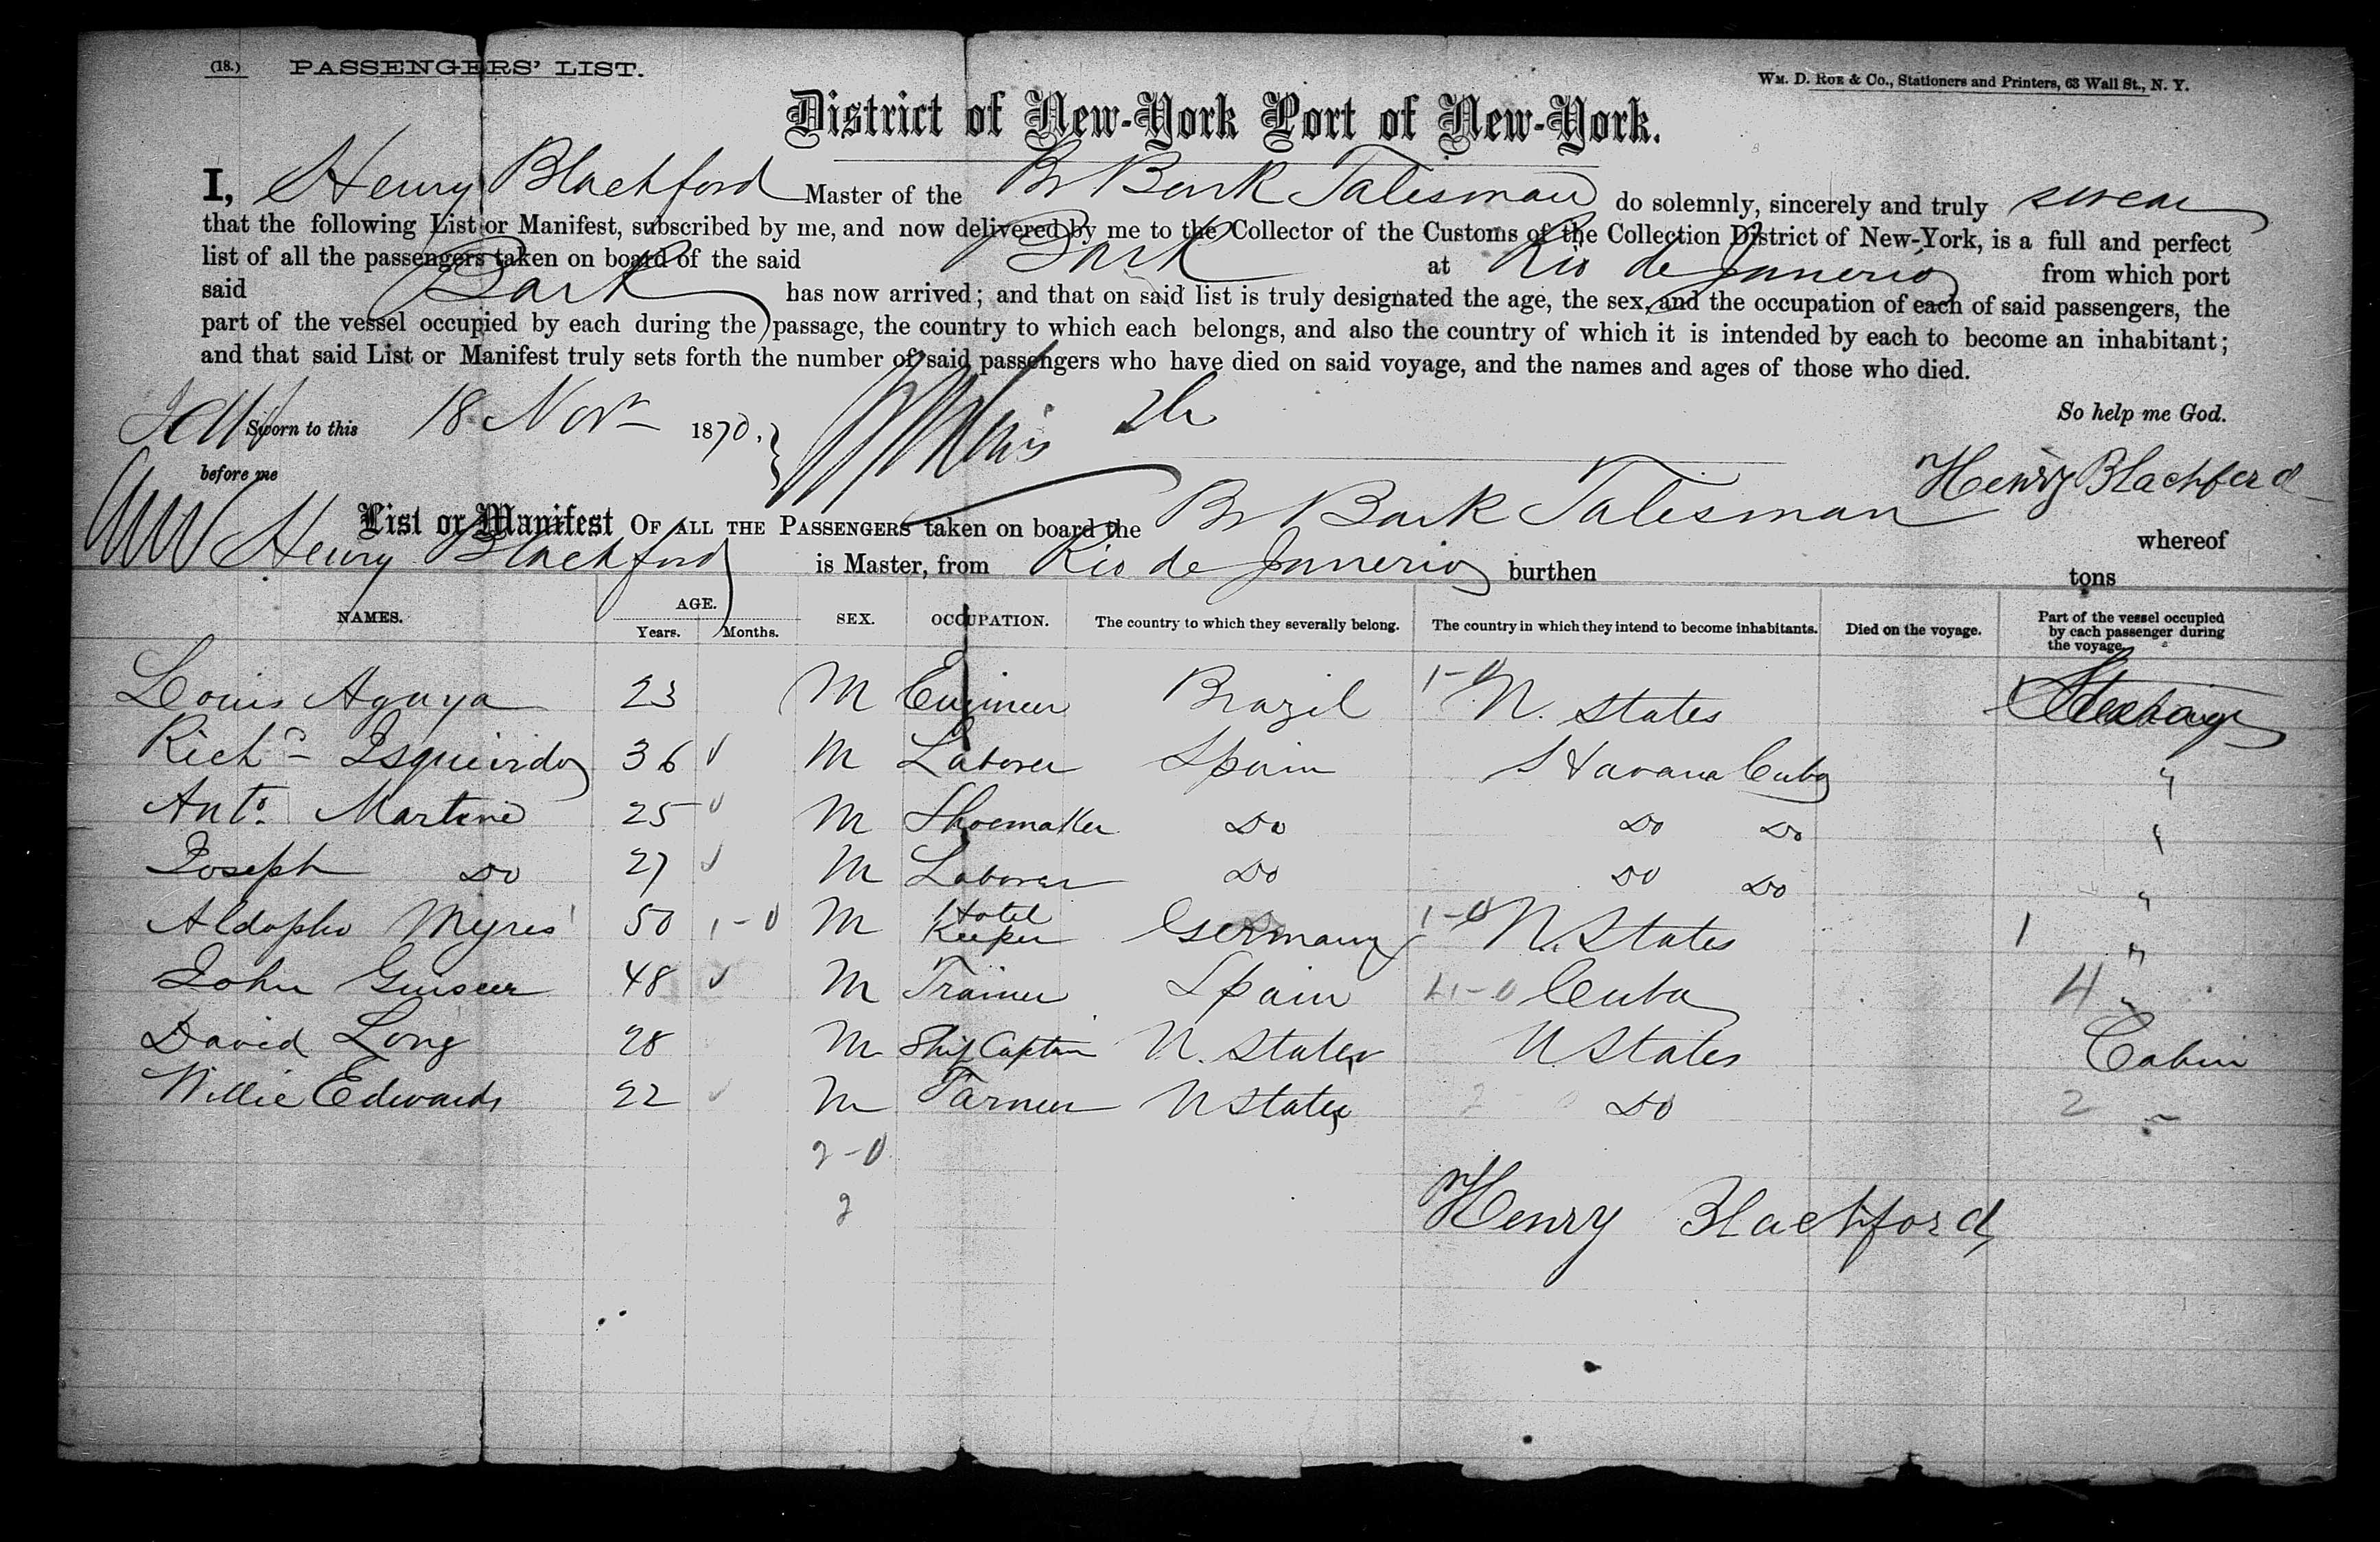 (18.) PASSENGERS' LIST.
WM. D. ROE & CO., Stationers and Printers, 63 Wall St., N. Y.
District of New-York Port of New-York.
I, Henry Blachford Master of the Br Bark Talisman do solemnly, sincerely and truly swear
that the following List or Manifest, subscribed by me, and now delivered by me to the Collector of the Customs of the Collection District of New-York, is a full and perfect
list of all the passengers taken on board of the said Bark at Rio de Janerio from which port
said Bark has now arrived; and that on said list is truly designated the age, the sex, and the occupation of each of said passengers, the
part of the vessel occupied by each during the passage, the country to which each belongs, and also the country of which it is intended by each to become an inhabitant;
and that said List or Manifest truly sets forth the number of said passengers who have died on said voyage, and the names and ages of those who died.
So help me God.
Sworn to this 18 Nov 1870.
before me
Henry Blachford
List or Manifest OF ALL THE PASSENGERS taken on board the Br Bark Talisman whereof
Henry Blachford is Master, from Rio de Janerio burthen tons
NAMES. AGE. Years. Months. SEX. OCCUPATION. The country to which they severally belong. The country in which they intend to become inhabitants. Died on the voyage. Part of the vessel occupied by each passenger during the voyage.
Louis Aguya 23 M Engineer Brazil 1-0 U. States Steerage
Richd Isquierdo 36 M Laborer Spain Havana Cuba "
Anto. Martine 25 M Shoemaker Do Do Do "
Joseph Do 27 M Laborer Do Do Do "
Aldopho Myres 50 1-0 M Hotel Keeper Germany 1-0 U. States 1 "
John 48 M Trainer Spain 4-0 Cuba 4 "
David Long 28 M Ship Captain U. States U States Cabin
Willie Edwards 22 M Farmer U States 2 Do 2 "
2-0
2
Henry Blachford